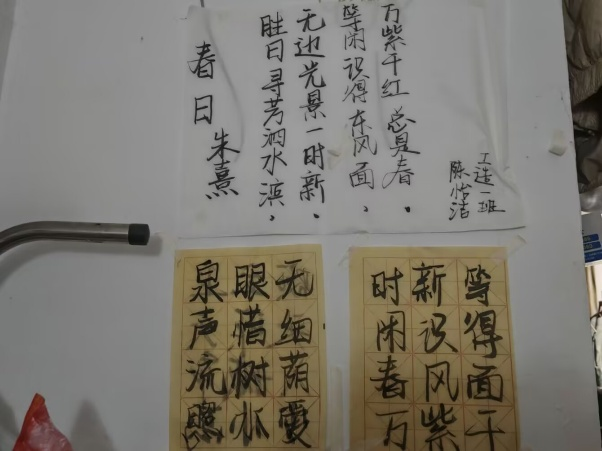 春日
朱熹
胜日寻芳泗水滨，
无边光景一时新。
等闲识得东风面，
万紫千红总是春。
工造一班
陈怡洁
泉声流照
眼惜树水
无细荫爱
时闲春万
新识风紫
等得面千